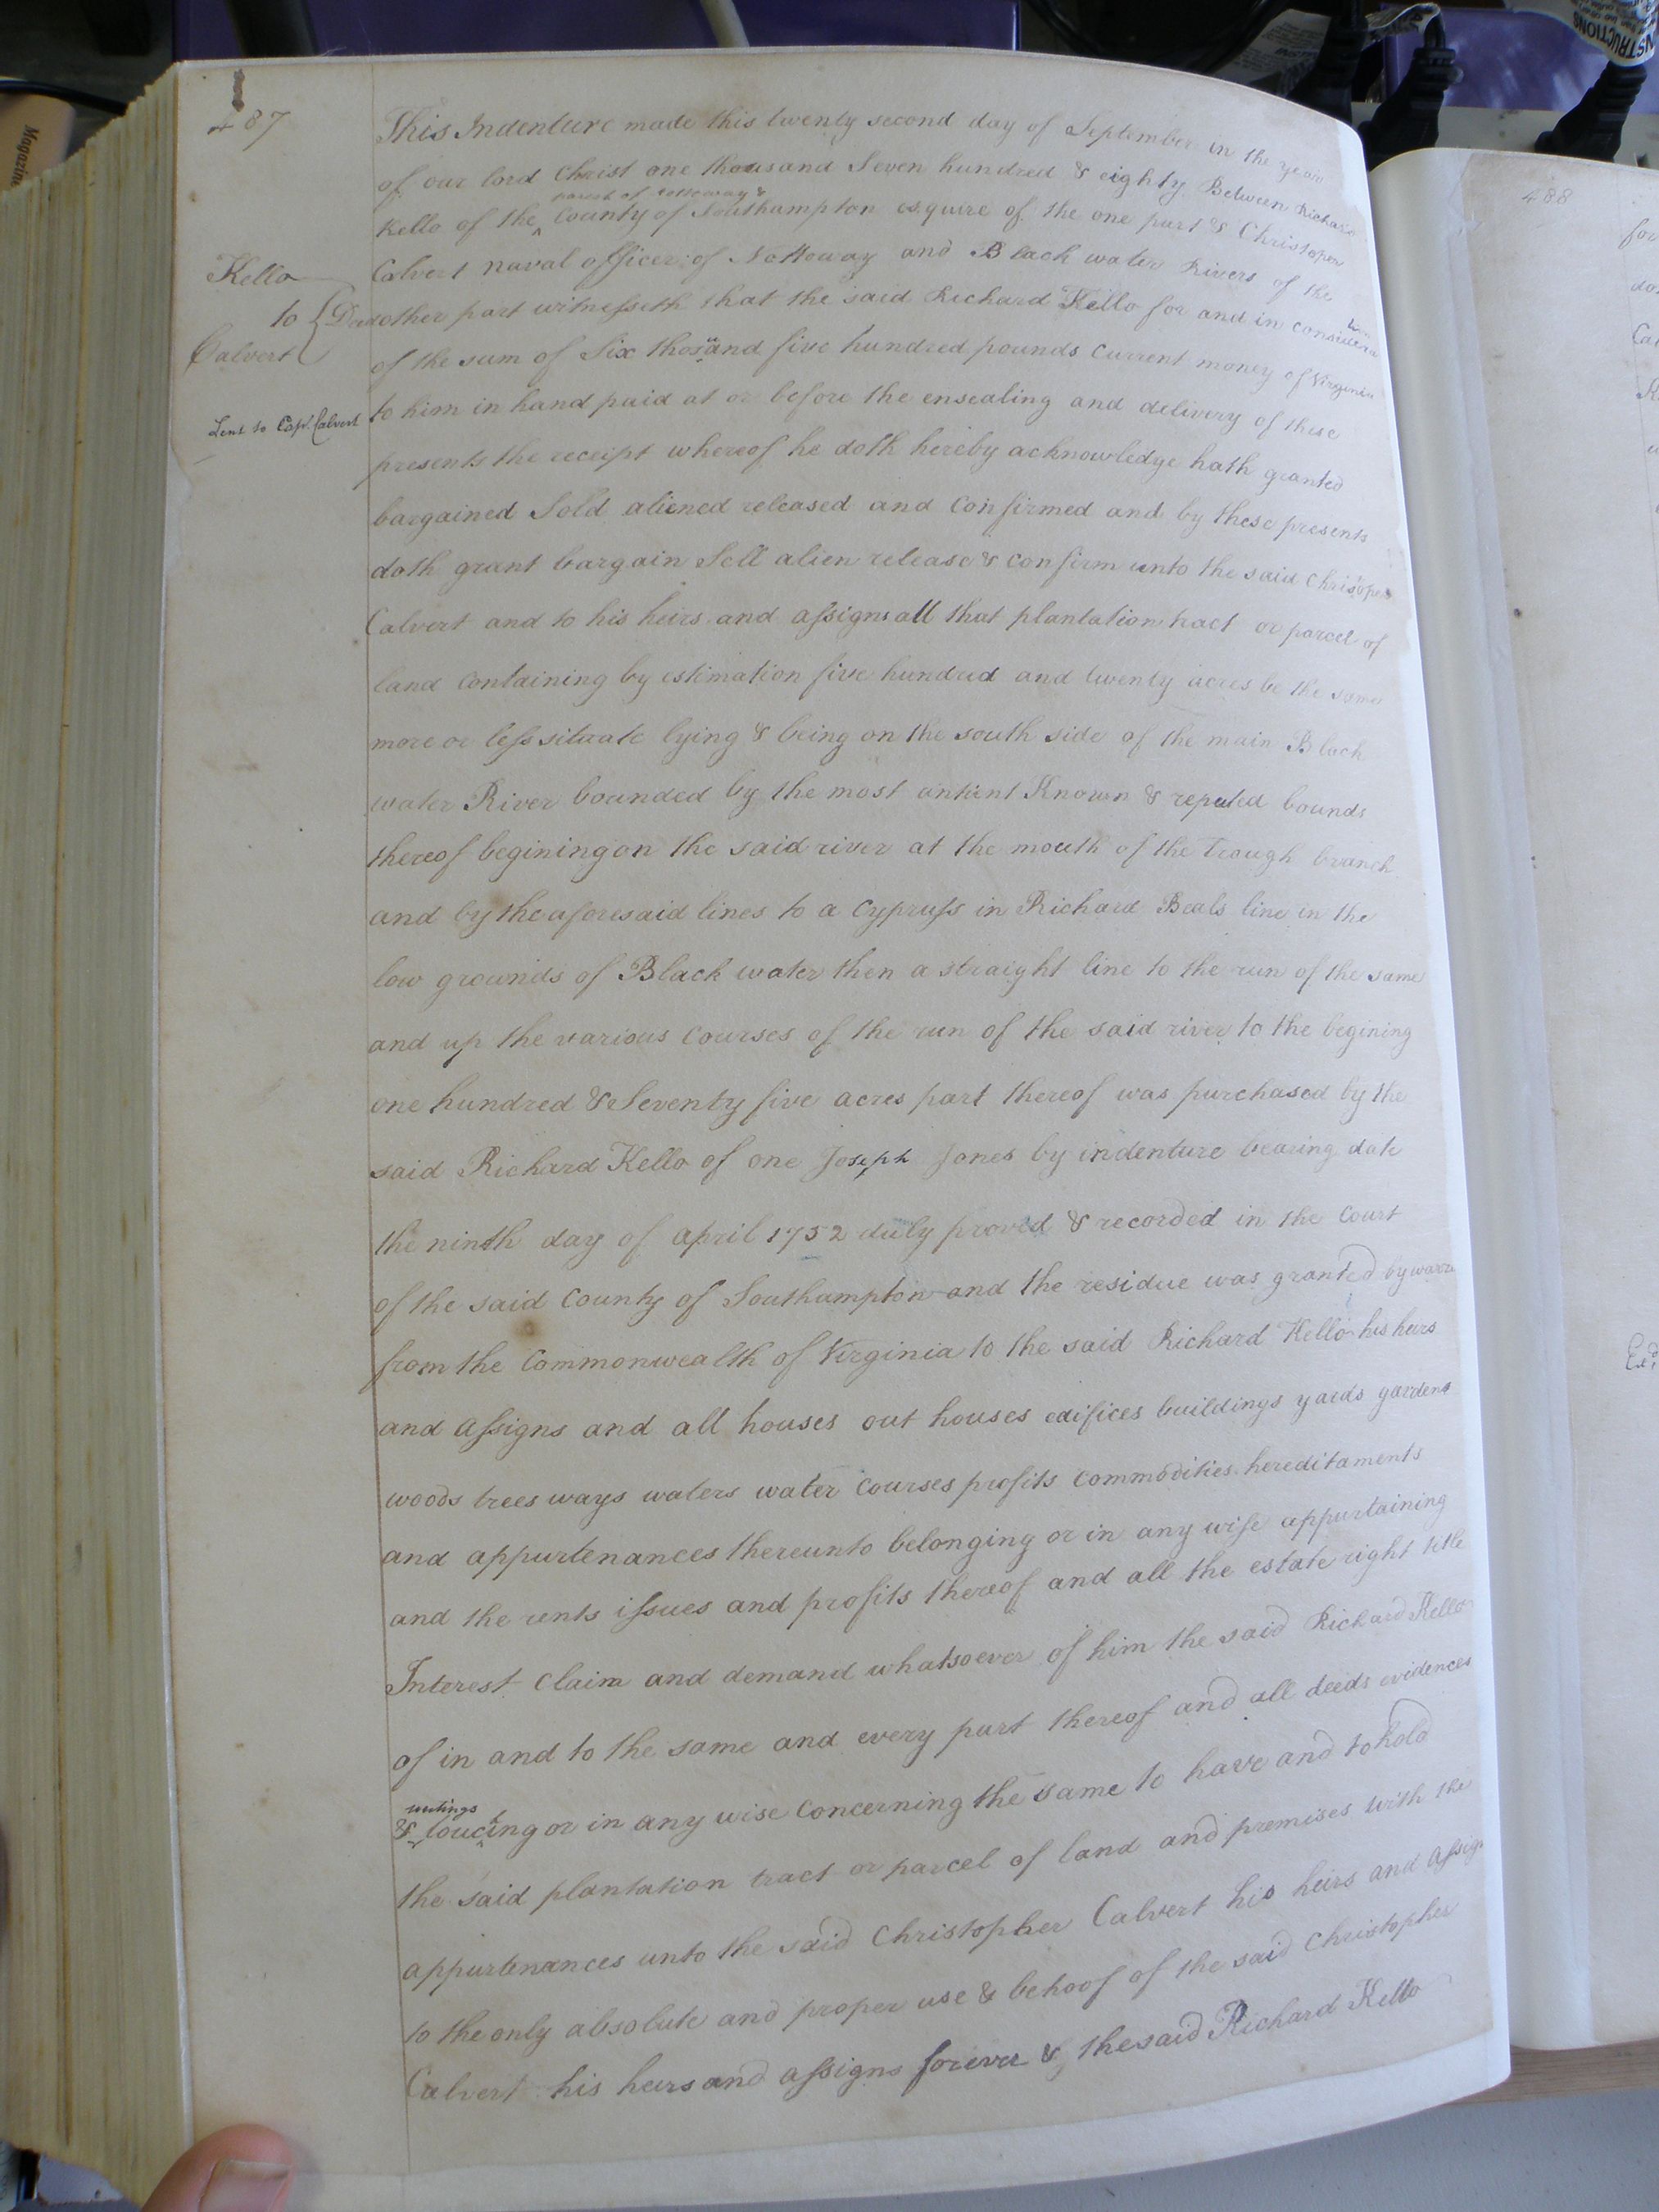 487
This Indenture made this twenty second day of September in the year
of our lord Christ one thousand Seven hundred & eighty Between Richard
parish of Nottoway &
Kello of the ^ County of Southampton esquire of the one part & Christopher
Calvert naval officer of Nottoway and Black water Rivers of the
Kello
to { Deed
Calvert
other part witnesseth that the said Richard Kello for and in consideration
of the sum of Six thousand five hundred pounds Current money of Virginia
Sent to Capt. Calvert
to him in hand paid at or before the ensealing and delivery of these
presents the receipt whereof he doth hereby acknowledge hath granted
bargained Sold aliened released and Confirmed and by these presents
doth grant bargain Sell alien release & Confirm unto the said Christopher
Calvert and to his heirs and assigns all that plantation tract or parcel of
land Containing by estimation five hundred and twenty acres be the same
more or less situate lying & being on the south side of the main Black
water River bounded by the most antient Known & reputed bounds
thereof begining on the said river at the mouth of the Trough branch
and by the aforesaid lines to a Cypruss in Richard Beals line in the
low grounds of Black water then a straight line to the run of the same
and up the various Courses of the run of the said river to the begining
one hundred & Seventy five acres part thereof was purchased by the
said Richard Kello of one Joseph Jones by indenture bearing date
the ninth day of april 1752 duly proved & recorded in the Court
of the said County of Southampton and the residue was granted by warra
from the Commonwealth of Virginia to the said Richard Kello his heirs
and Assigns and all houses out houses edifices buildings yards gardens
woods trees ways waters water Courses profits Commodities hereditaments
and appurtenances thereunto belonging or in any wise appurtaining
and the rents issues and profits thereof and all the estate right title
Interest Claim and demand whatsoever of him the said Richard Kello
of in and to the same and every part thereof and all deeds evidences
writings
& toucing or in any wise Concerning the same to have and to hold
the said plantation tract or parcel of land and premises with the
appurtenances unto the said Christopher Calvert his heirs and Assigns
to the only absolute and proper use & behoof of the said Christopher
Calvert his heirs and assigns forever & the said Richard Kello
488
INSTRUCTIONS
Magazine